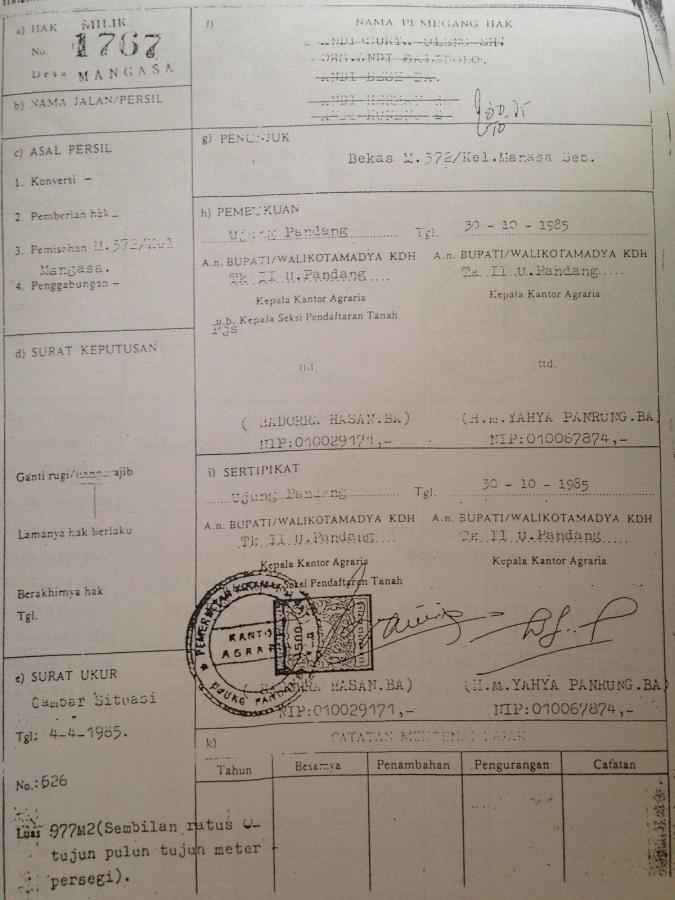 a) HAK MILIK
No. 1767
Desa MANGASA
b) NAMA JALAN/PERSIL
c) ASAL PERSIL
1. Konversi -
2. Pemberian hak -
3. Pemisahan M.372/Kel
Mangasa.
4. Penggabungan -
d) SURAT KEPUTUSAN
Ganti rugi/ wajib
Lamanya hak berlaku
Berakhirnya hak
Tgl.
e) SURAT UKUR
Gambar Situasi
Tgl: 4-4-1985.
No.: 626
Luas 977M2(Sembilan ratus
tujuh puluh tujuh meter
persegi).
f) NAMA PEMEGANG HAK
g) PENUNJUK
Bekas M.372/Kel.
h) PEMBUKUAN
Ujung Pandang Tgl. 30 - 10 - 1985
A.n. BUPATI/WALIKOTAMADYA KDH
Tk II U.Pandang
Kepala Kantor Agraria
u.b. Kepala Seksi Pendaftaran Tanah
Pjs
ttd.
( BADORRA HASAN.BA)
NIP:010029171,-
A.n. BUPATI/WALIKOTAMADYA KDH
Tk II U.Pandang
Kepala Kantor Agraria
ttd.
(H.M.YAHYA PANRUNG.BA
NIP:010067874,-
i) SERTIPIKAT
Ujung Pandang Tgl. 30 - 10 - 1985
A.n. BUPATI/WALIKOTAMADYA KDH
Tk II U.Pandang
Kepala Kantor Agraria
Seksi Pendaftaran Tanah
KANTOR
AGRARIA
UJUNG PANDANG
HASAN.BA)
NIP:010029171,-
A.n. BUPATI/WALIKOTAMADYA KDH
Tk II U.Pandang
Kepala Kantor Agraria
(H.M.YAHYA PANRUNG.BA)
NIP:010067874,-
k) CATATAN
Tahun Besarnya Penambahan Pengurangan Catatan